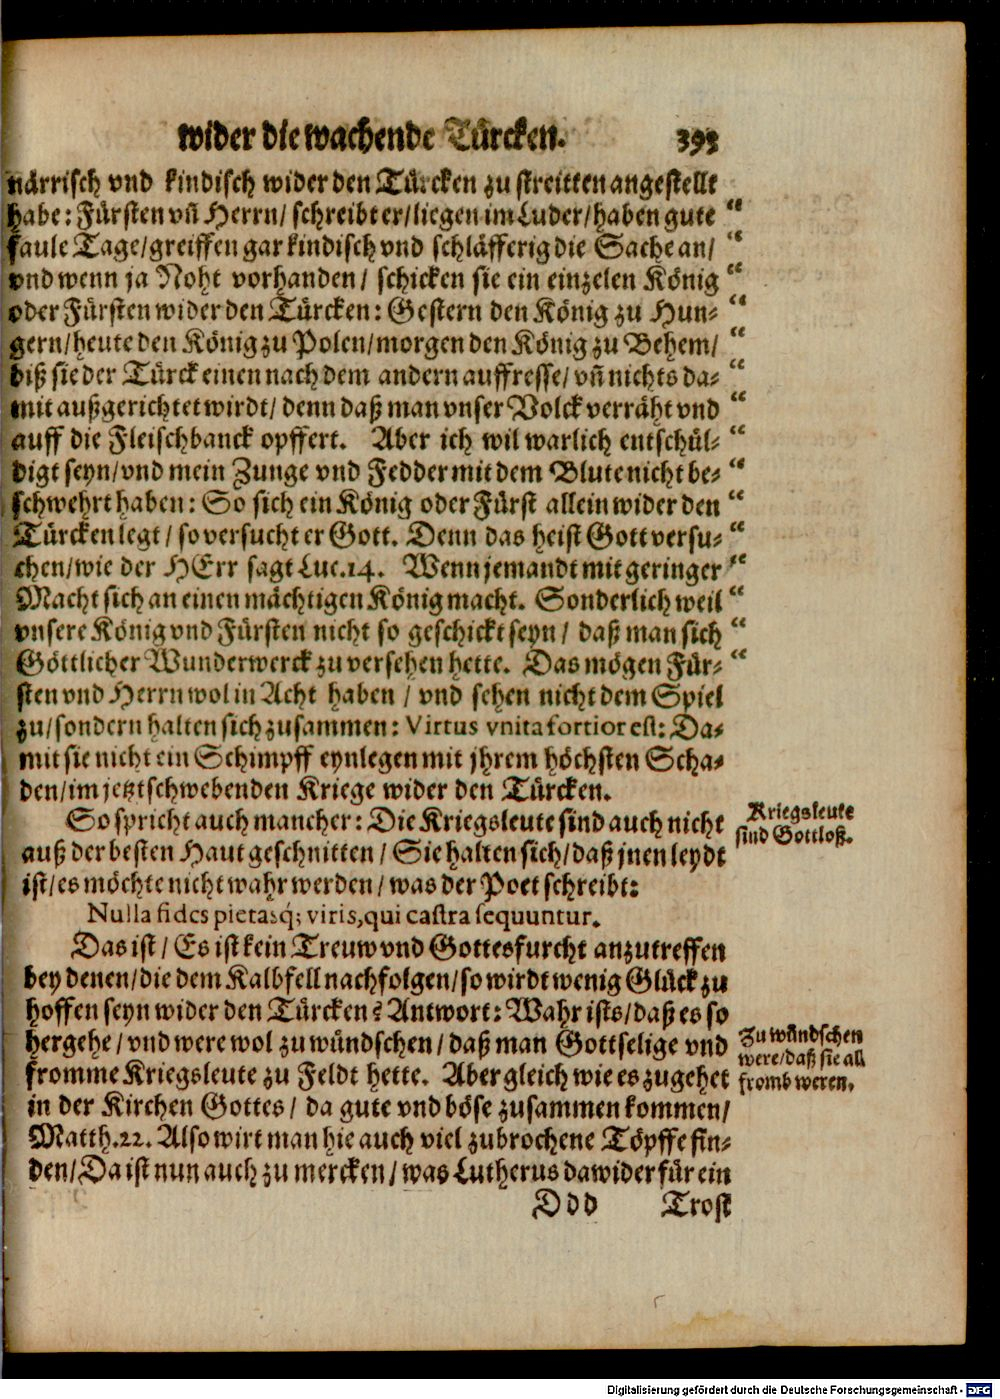 wider die wachende Türcken. 393
närrisch vnd kindisch wider den Türcken zu streitten angestellt
habe: Fürsten vñ Herrn/ schreibt er/ liegen im Luder/ haben gute “
faule Tage/ greiffen gar kindisch vnd schläfferig die Sache an/ “
vnd wenn ja Noht vorhanden/ schicken sie ein einzelen König “
oder Fürsten wider den Türcken: Gestern den König zu Hun- “
gern/ heute den König zu Polen/ morgen den König zu Behem/ “
biß sie der Türck einen nach dem andern auffresse/ vñ nichts da- “
mit außgerichtet wirdt/ denn daß man vnser Volck verräht vnd “
auff die Fleischbanck opffert. Aber ich wil warlich entschül- “
digt seyn/ vnd mein Zunge vnd Fedder mit dem Blute nicht be- “
schwehrt haben: So sich ein König oder Fürst allein wider den “
Türcken legt/ so versucht er Gott. Denn das heist Gott versu- “
chen/ wie der HErr sagt Luc. 14. Wenn jemandt mit geringer “
Macht sich an einen mächtigen König macht. Sonderlich weil “
vnsere König vnd Fürsten nicht so geschickt seyn/ daß man sich “
Göttlicher Wunderwerck zu versehen hette. Das mögen Für- “
sten vnd Herrn wol in Acht haben/ vnd sehen nicht dem Spiel
zu/ sondern halten sich zusammen: Virtus vnita fortior est: Da-
mit sie nicht ein Schimpff eynlegen mit jhrem höchsten Scha-
den/ im jetzt schwebenden Kriege wider den Türcken.
So spricht auch mancher: Die Kriegsleute sind auch nicht
auß der besten Haut geschnitten/ Sie halten sich/ daß jnen leydt
ist/ es möchte nicht wahr werden/ was der Poet schreibt:
Kriegsleute
sind Gottloß.
Nulla fides pietasq́; viris, qui castra sequuntur.
Das ist/ Es ist kein Treuw vnd Gottesfurcht anzutreffen
bey denen/ die dem Kalbfell nachfolgen/ so wirdt wenig Glück zu
hoffen seyn wider den Türcken? Antwort: Wahr ists/ daß es so
hergehe/ vnd were wol zu wündschen/ daß man Gottselige vnd
fromme Kriegsleute zu Feldt hette. Aber gleich wie es zugehet
Zu wündschen
were/ daß sie all
fromb weren.
in der Kirchen Gottes/ da gute vnd böse zusammen kommen/
Matth. 22. Also wirt man hie auch viel zubrochene Töpffe fin-
den/ Da ist nun auch zu mercken/ was Lutherus dawider für ein
Ddd Trost
Digitalisierung gefördert durch die Deutsche Forschungsgemeinschaft - DFG